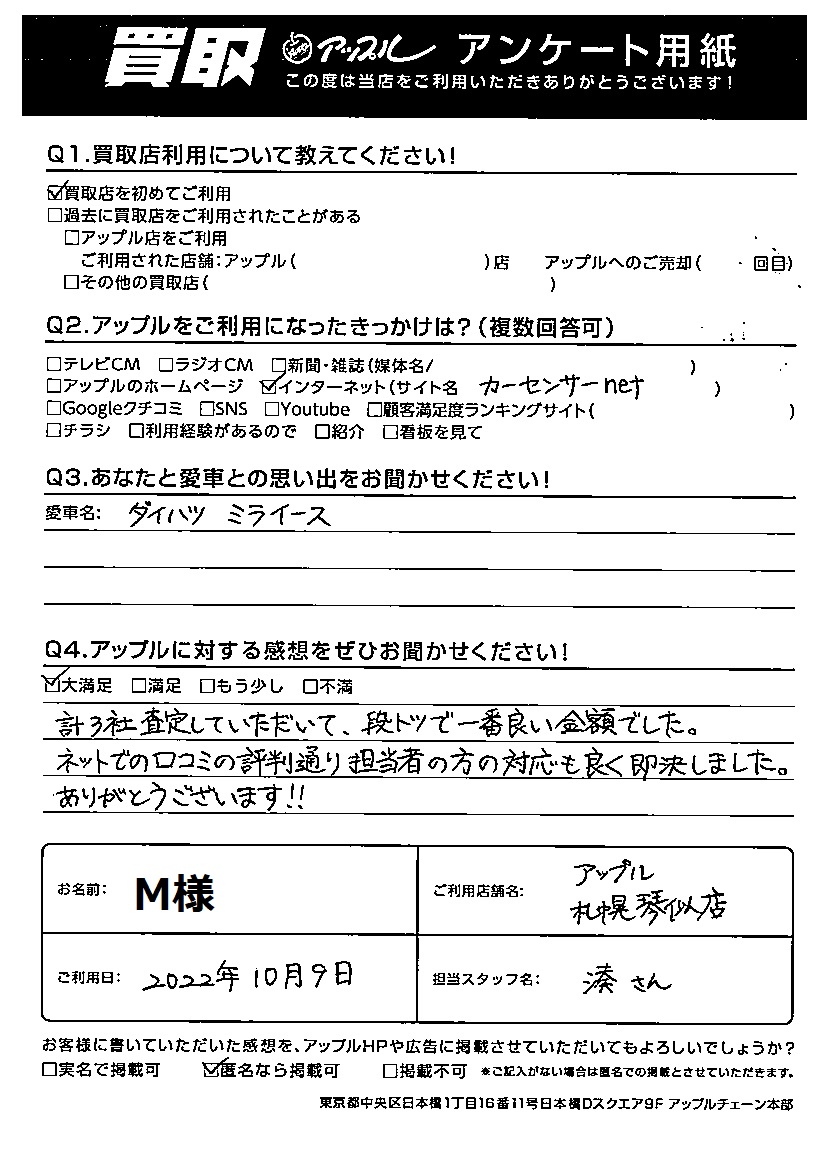 買取 アップル アンケート用紙
この度は当店をご利用いただきありがとうございます!
Q1.買取店利用について教えてください!
☑買取店を初めてご利用
□過去に買取店をご利用されたことがある
□アップル店をご利用
ご利用された店舗:アップル( )店 アップルへのご売却( 回目)
□その他の買取店( )
Q2.アップルをご利用になったきっかけは?(複数回答可)
□テレビCM □ラジオCM □新聞・雑誌(媒体名/ )
□アップルのホームページ ☑インターネット(サイト名 カーセンサーnet )
□Googleクチコミ □SNS □Youtube □顧客満足度ランキングサイト( )
□チラシ □利用経験があるので □紹介 □看板を見て
Q3.あなたと愛車との思い出をお聞かせください!
愛車名: ダイハツ ミライース
Q4.アップルに対する感想をぜひお聞かせください!
☑大満足 □満足 □もう少し □不満
計3社査定していただいて、段トツで一番良い金額でした。
ネットでの口コミの評判通り担当者の方の対応も良く即決しました。
ありがとうございます!!
お名前: M様
ご利用店舗名: アップル
札幌琴似店
ご利用日: 2022年10月9日
担当スタッフ名: 湊さん
お客様に書いていただいた感想を、アップルHPや広告に掲載させていただいてもよろしいでしょうか?
□実名で掲載可 ☑匿名なら掲載可 □掲載不可 ※ご記入がない場合は匿名での掲載とさせていただきます。
東京都中央区日本橋1丁目16番11号日本橋Dスクエア9F アップルチェーン本部